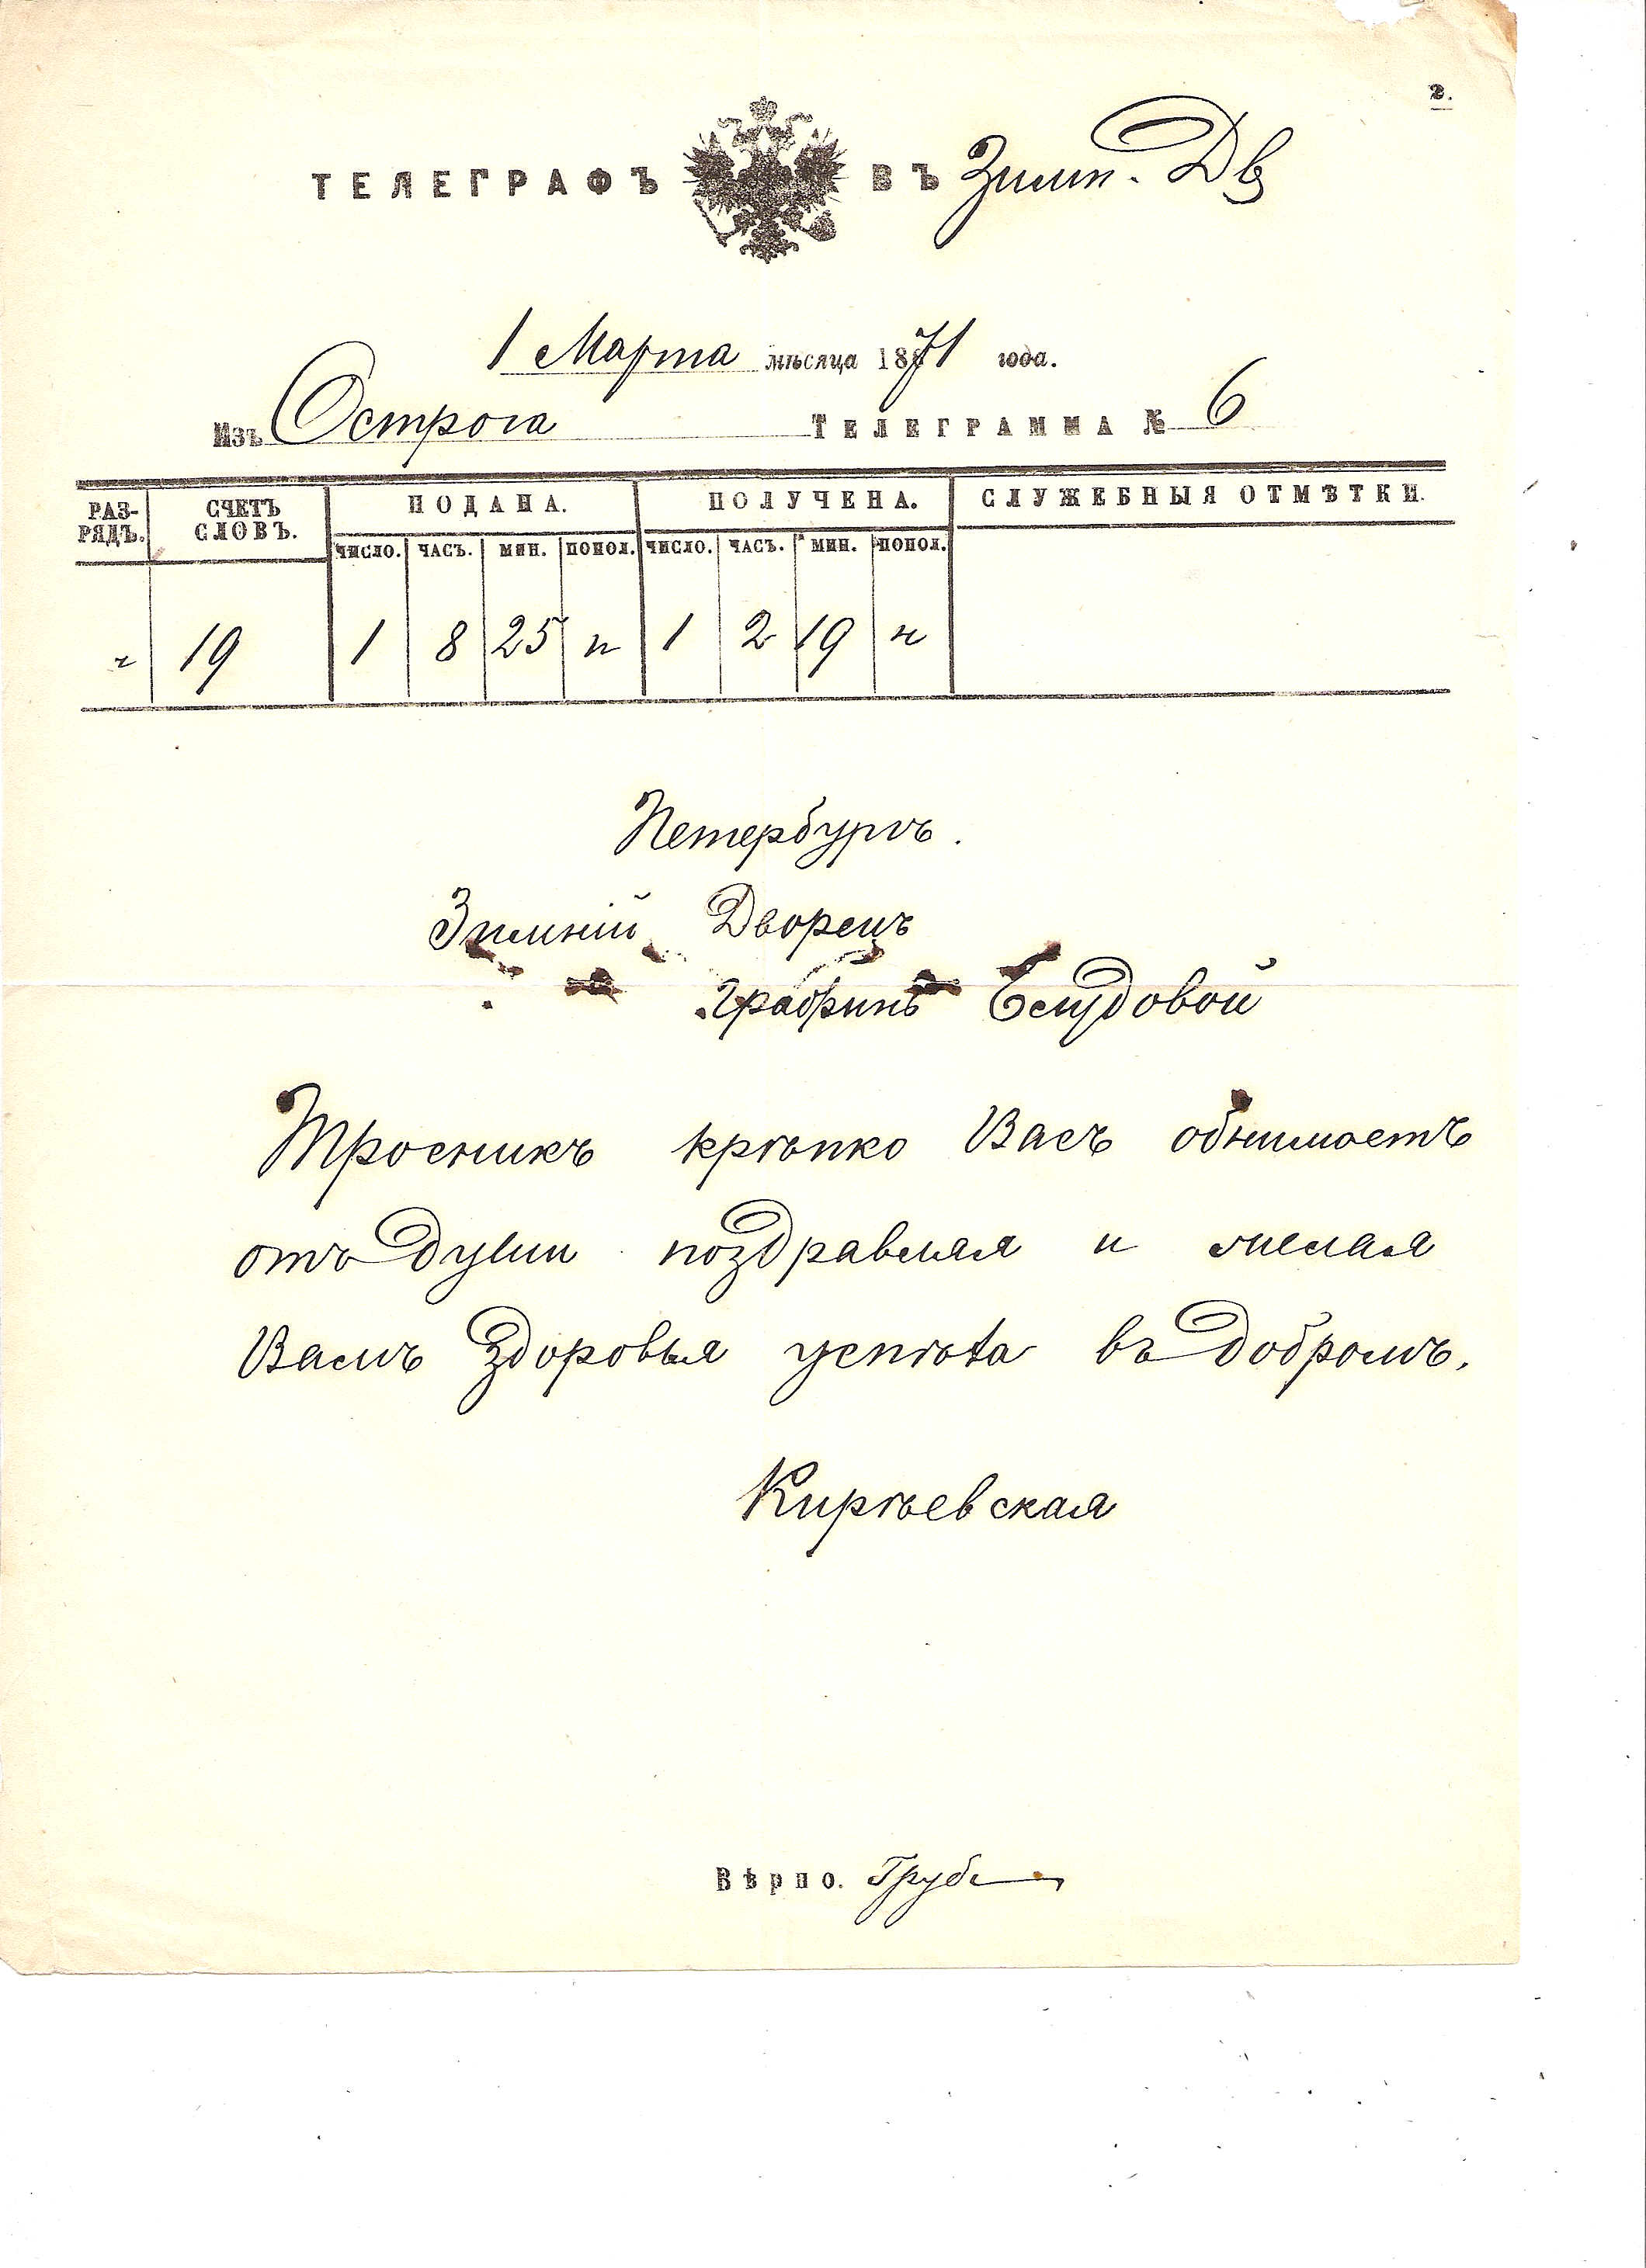 2.
ТЕЛЕГРАФЪ ВЪ Зимн. Дв
1 Марта мѣсяца 1871 года.
Изъ Острога ТЕЛЕГРАММА № 6
РАЗ-РЯДЪ. СЧЕТЪ СЛОВЪ. ПОДАНА. ПОЛУЧЕНА. СЛУЖЕБНЫЯ ОТМѢТКИ.
ЧИСЛО. ЧАСЪ. МИН. ПОПОЛ. ЧИСЛО. ЧАСЪ. МИН. ПОПОЛ.
19 1 8 25 п 1 2 19 н
Петербургъ.
Зимній Дворецъ
Графинѣ Блудовой
крѣпко Васъ обнимаетъ
отъ души поздравляя и желая
Вамъ здоровья успѣха въ добромъ.
Кирѣевская
Вѣрно.